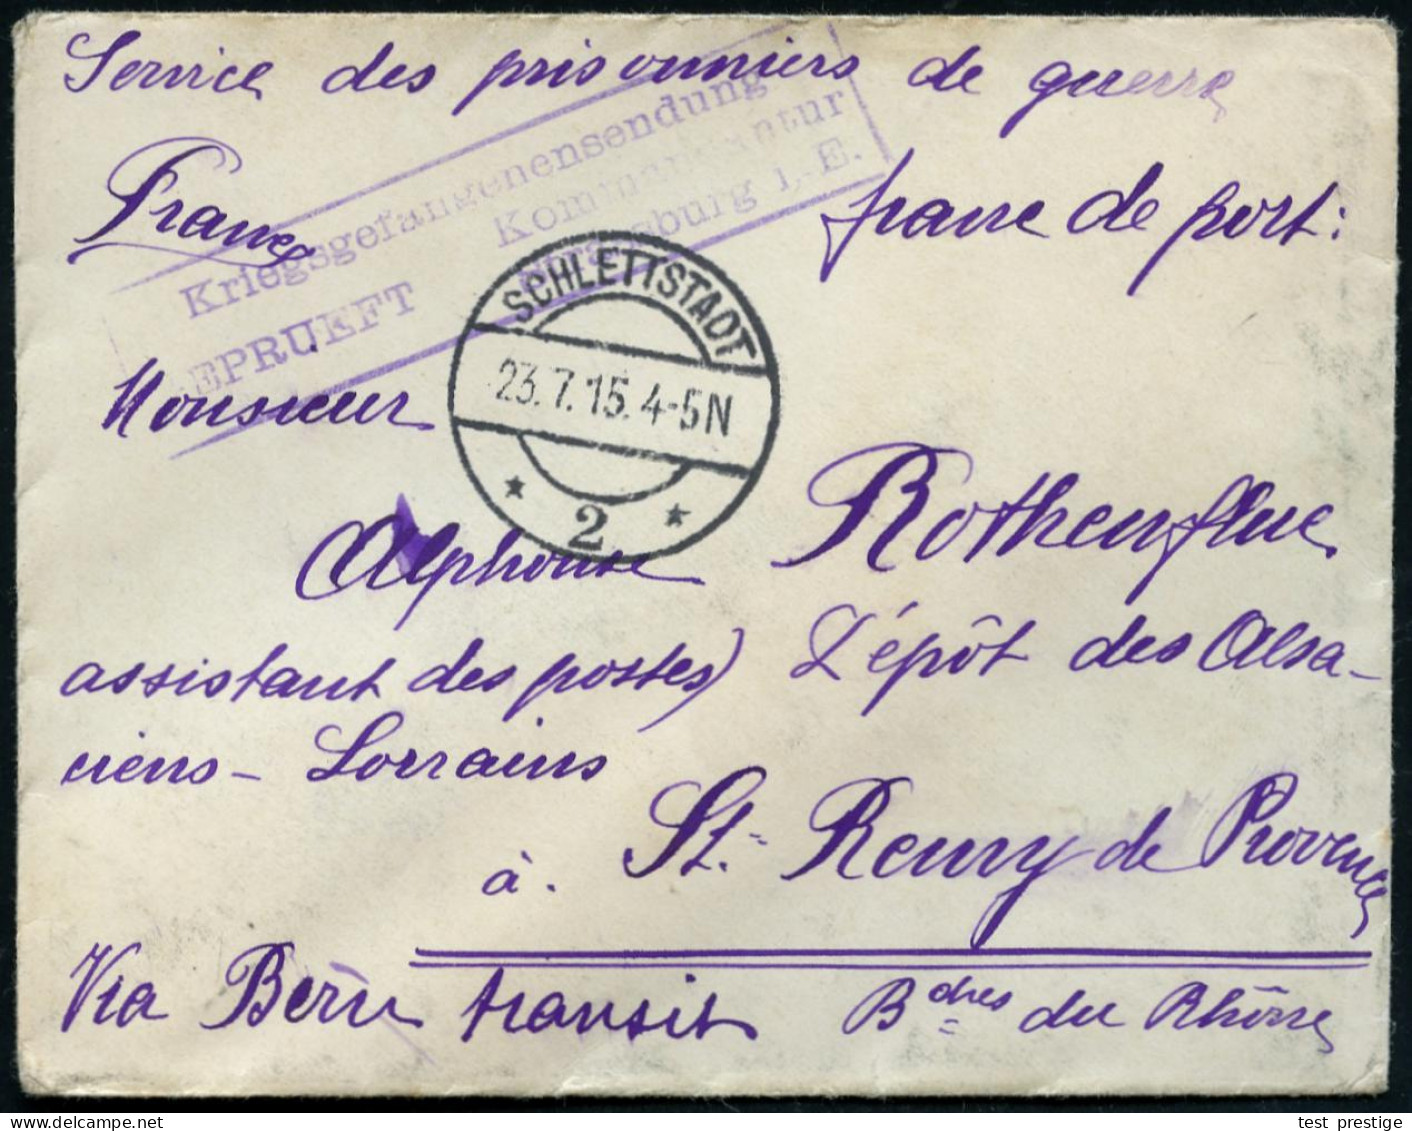 Service des prisonniers de guerre
France
franc de port:
Kriegsgefangenensendung
Kommandantur
i. E.
GEPRUEFT
SCHLETTSTADT
23.7.15.4-5N
* 2 *
Monsieur
Alphonse Rothenflue
assistant des postes) Dépôt des Alsa-
ciens - Lorrains
à St. Remy de Provence
Via Bern transit Bches du Rhône
test_prestige